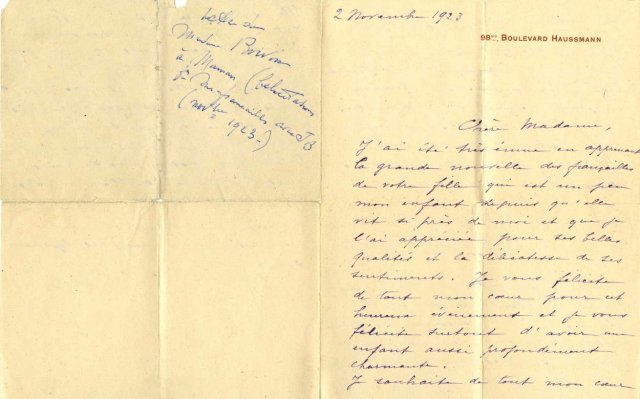 lettre de
Madame
à Maman (félicitations
fiançailles avec J B
(novbre 1923.)
2 Novembre 1923
98bis, BOULEVARD HAUSSMANN
Chère Madame,
J'ai été très émue en apprenant
la grande nouvelle des fiançailles
de votre fille qui est un peu
mon enfant depuis qu'elle
vit si près de moi et que je
l'ai appréciée pour ses belles
qualités et la délicatesse de ses
sentiments. Je vous félicite
de tout mon cœur pour cet
heureux événement et je vous
félicite surtout d'avoir un
enfant aussi profondément
charmante.
Je souhaite de tout mon cœur